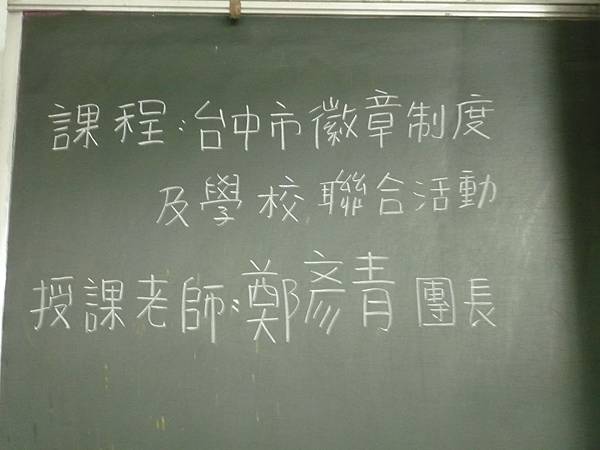 課程:台中市徽章制度
及學校聯合活動
授課老師:鄭彥青團長